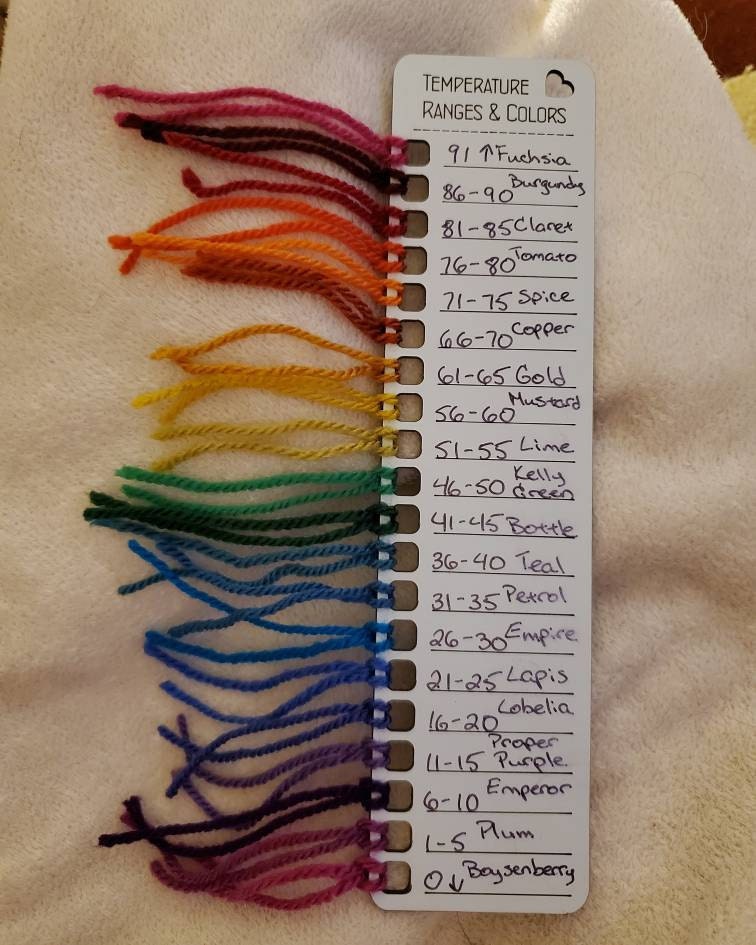 TEMPERATURE
RANGES & COLORS
91 ↑ Fuchsia
86-90 Burgundy
81-85 Claret
76-80 Tomato
71-75 Spice
66-70 Copper
61-65 Gold
56-60 Mustard
51-55 Lime
46-50 Kelly Green
41-45 Bottle
36-40 Teal
31-35 Petrol
26-30 Empire
21-25 Lapis
16-20 Lobelia
11-15 Proper Purple
6-10 Emperor
1-5 Plum
0↓ Boysenberry